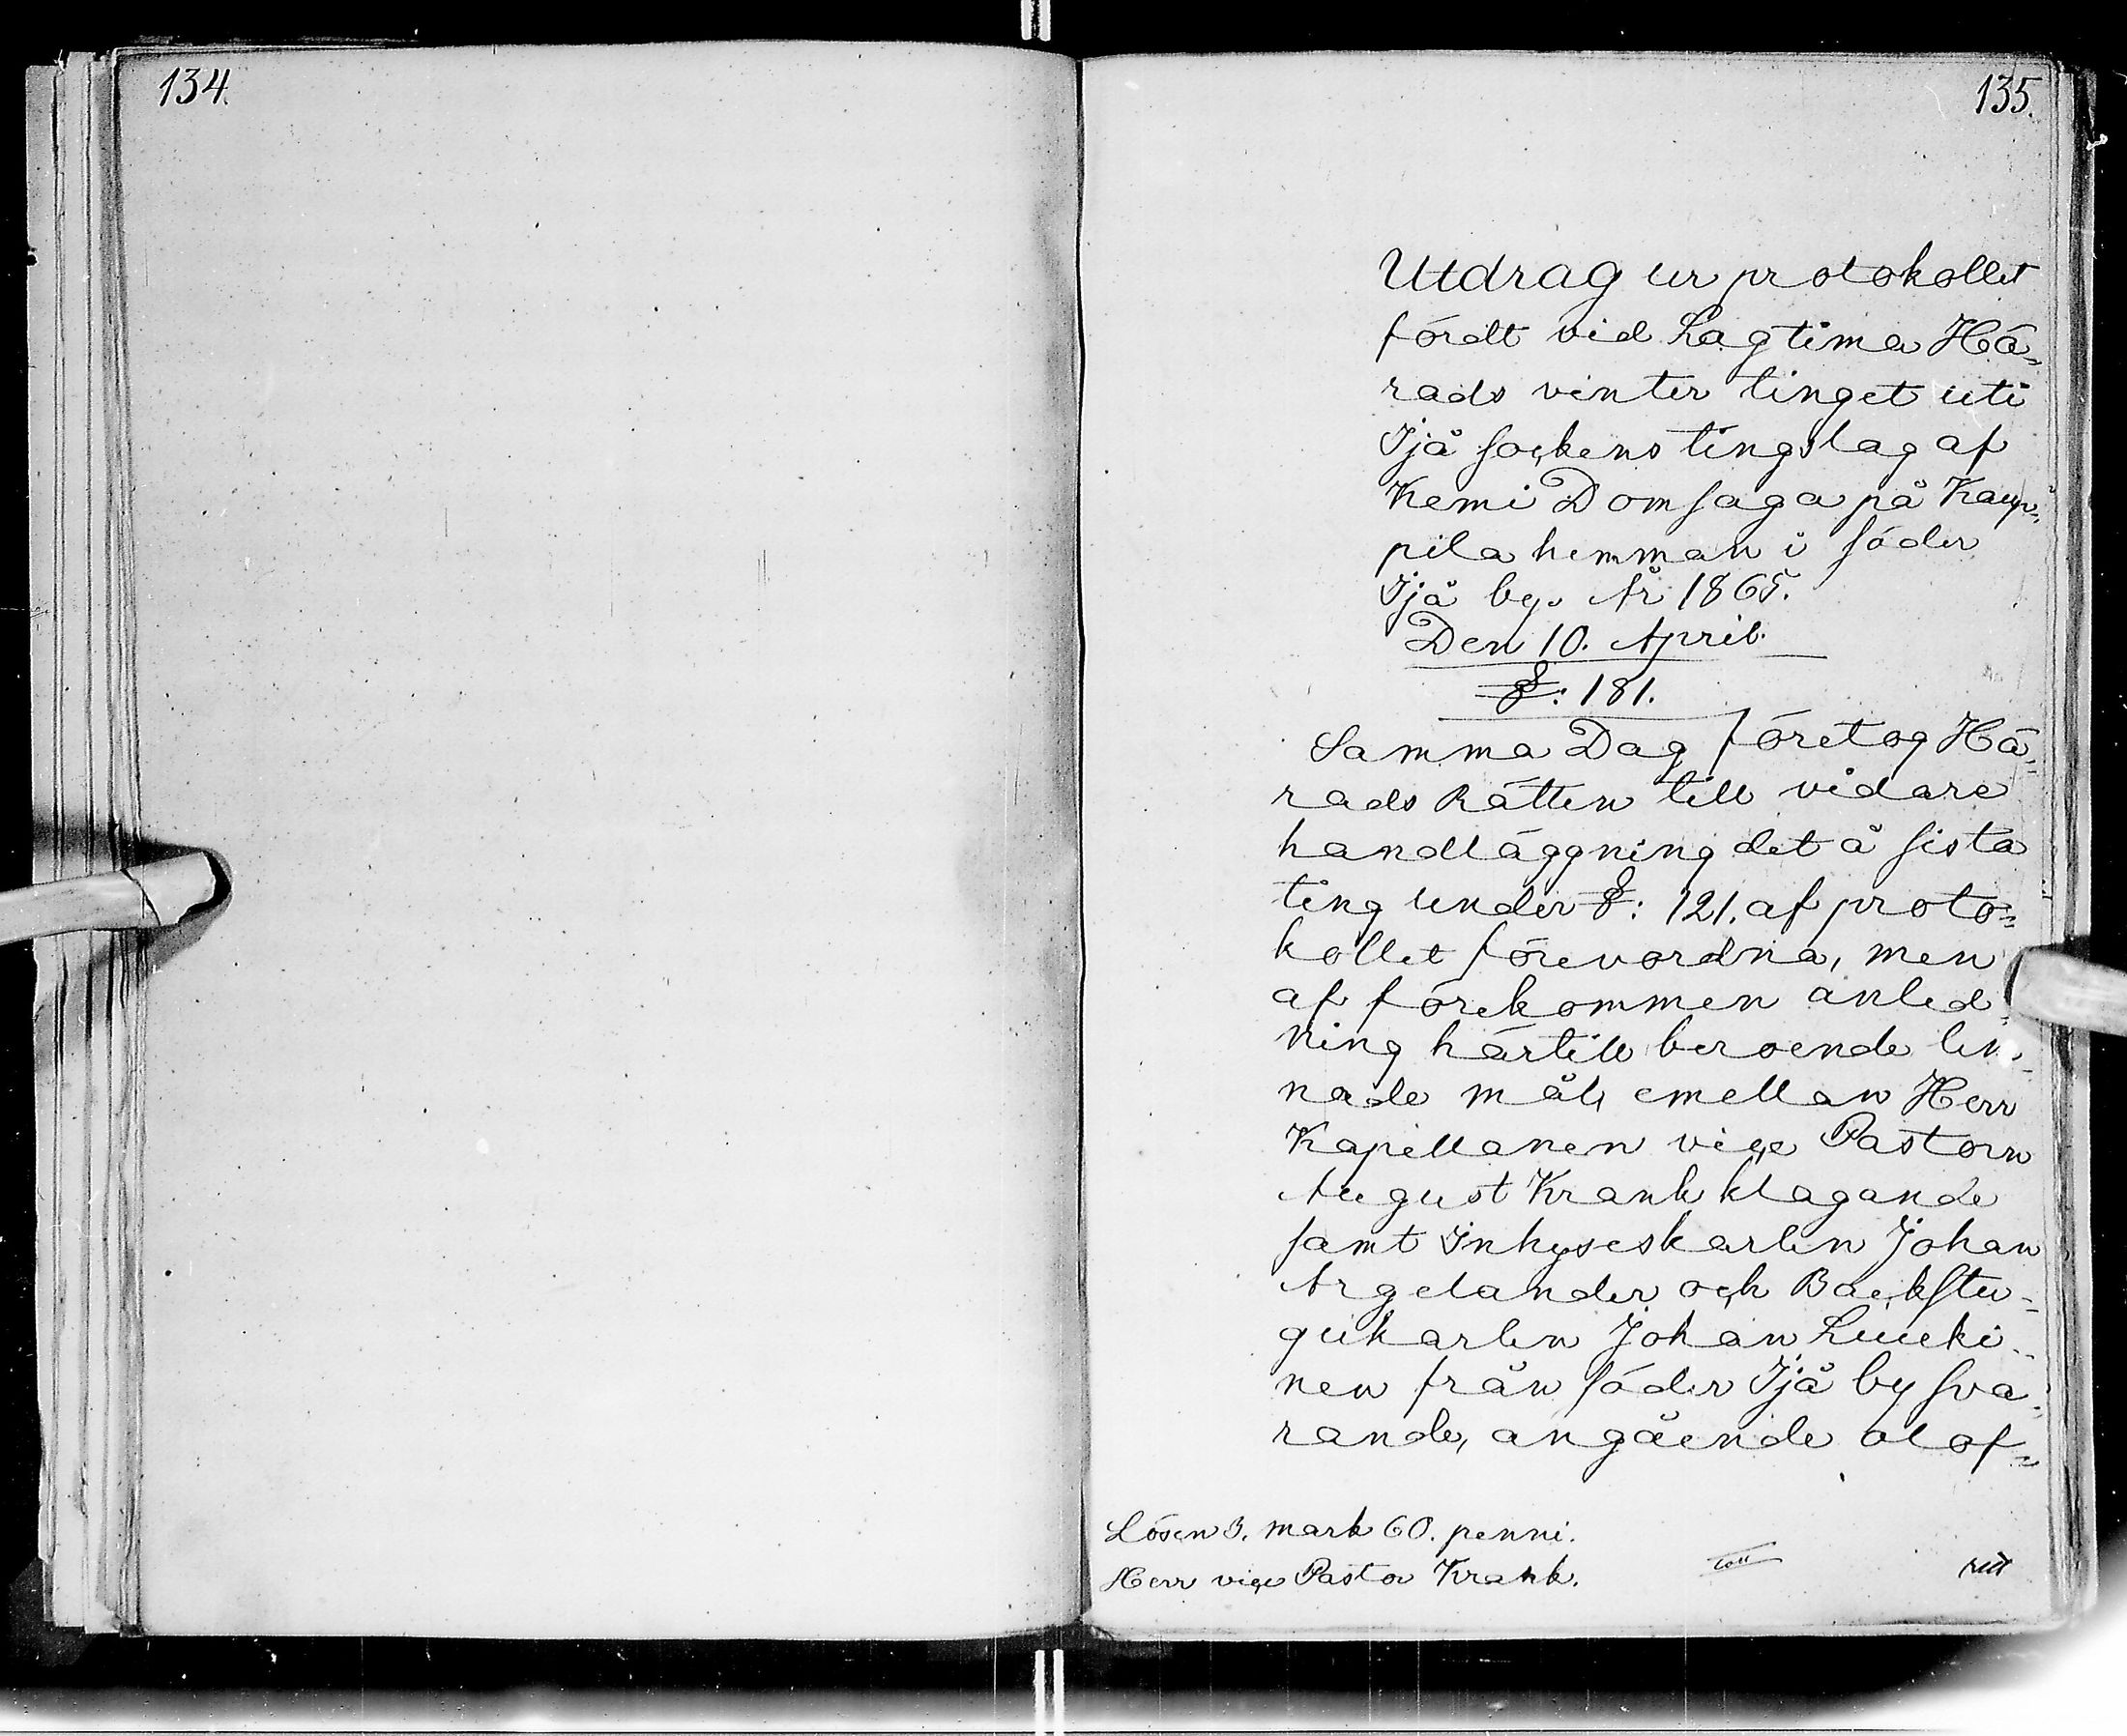 134.
135.
Utdrag ur protokollet
fördt vid Lagtima Hä-
rads vinter tinget uti
Ijå sockens tingslag af
Kemi Domsaga på Kaup-
pila hemman i söder
Ijå by. År 1865.
Den 10. April.
§: 181.
Samma Dag företog Hä-
rads Rätten till vidare
handläggning det å sista
ting under §: 121. af proto-
kollet förevordna, men
af förekommen anled-
ning härtill beroende lem-
nade mål, emellan Herr
Kapellanen vice Pastorn
August Krank klagande
samt Inhyseskarlen Johan
Argelander och Backstu-
gukarlen Johan Luuki-
nen från söder Ijå by sva-
rande, angående olof-
Lösen 3. mark 60. penni.
Herr vice Pastor Krank.